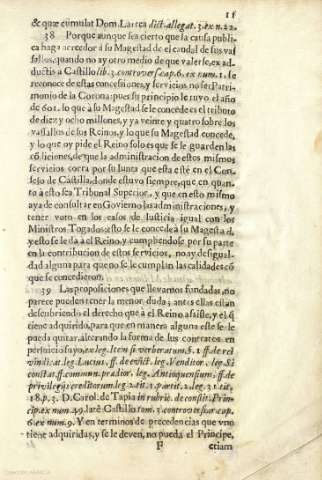 15
& quæ cumulat Dom. Larrea dict. allegat. 3. ex n. 22.
38 Porque aunque sea cierto que la causa publi
ca haga acceder a su Magestad de el caudal de sus vas
sallos, quando no ay otro medio de que valerse, ex ad-
ductis a Castillo lib. 3. controvers. cap. 6. ex num. 1. se
reconoce de estas concessiones, y servicios no ser Patri-
monio de la Corona: pues su principio le tuvo el año
de 601. lo que à su Magestad se le concede es el tributo
de diez y ocho millones, y a veinte y quatro sobre los
vassallos de los Reinos, y lo que su Magestad concede,
y lo que oy pide el Reino solo es que se le guarden las
cōdiciones, de que la administracion de estos mismos
servicios corra por su Iunta que esta esté en el Con-
sejo de Castilla, donde estuvo siempre, que en quan-
to à esto sea Tribunal Superior, y que en esto mismo
aya de consultar en Govierno las administraciones, y
tener voto en los casos de Iusticia igual con los
Ministros Togados: esto se le concede à su Magestad,
y esto se le dà al Reino, y cumpliendose por su parte
en la contribucion de estos servicios, no ay desigual-
dad alguna para que no se le cumplan las calidades cō
que se concedieron.
39 Las proposiciones que llevamos fundadas, no
parece pueden tener la menor duda; antes ellas están
descubriendo el derecho que à el Reino assiste, y el q̃
tiene adquirido, para que en manera alguna este se le
pueda quitar, alterando la forma de sus contratos en
perjuicio suyo, ex leg. Item si verberatum §. 1. ff. de rei
vindicat. leg. Lucius, ff. de evict. leg. Venditor, leg. Si
constat, ff. commun. prædior. leg. Antiquensium, ff. de
privilegijs creditorum leg. 2. tit. 1. partit. 2. leg. 31. tit.
18. p. 3. D. Carol. de Tapia in rubric. de constit. Prin-
cip. ex num. 29. latè Castillo tom. 3. controversiar. cap.
6. ex num. 9. Y en terminos de precedencias que vno
tiene adquiridas, y se le deven, no pueda el Principe,
F
etiam